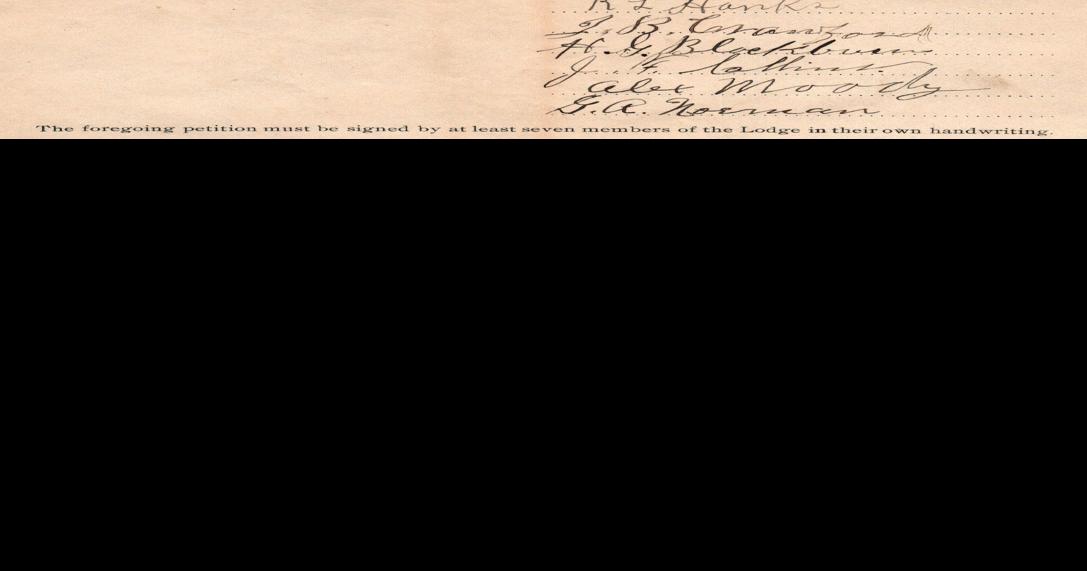 R L Hanks
J. B. Crawford
H. G. Blackburn
J. F. Collins.
Alex Moody
G. A. Norman
The foregoing petition must be signed by at least seven members of the Lodge in their own handwriting.